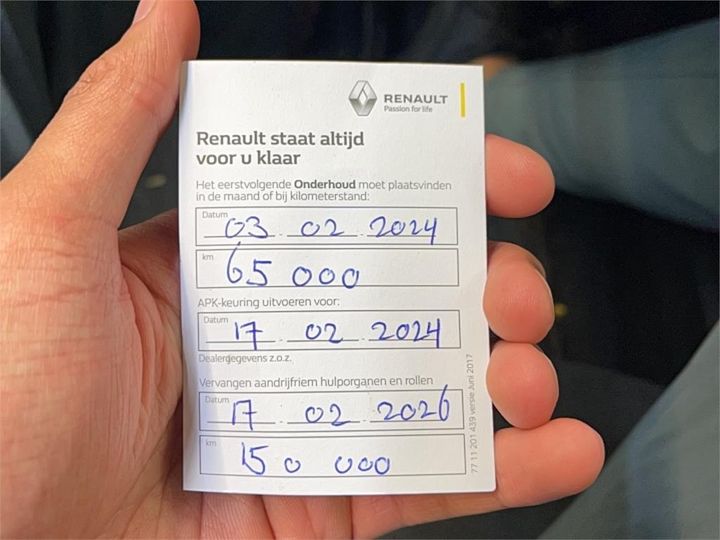 RENAULT
Passion for life
Renault staat altijd
voor u klaar
Het eerstvolgende Onderhoud moet plaatsvinden
in de maand of bij kilometerstand:
Datum
03 02 2024
km
65 000
APK-keuring uitvoeren voor:
Datum
17 02 2024
Dealergegevens z.o.z.
Vervangen aandrijfriem hulporganen en rollen
Datum
17 02 2026
km
150 000
77 11 201 439 versie Juni 2017